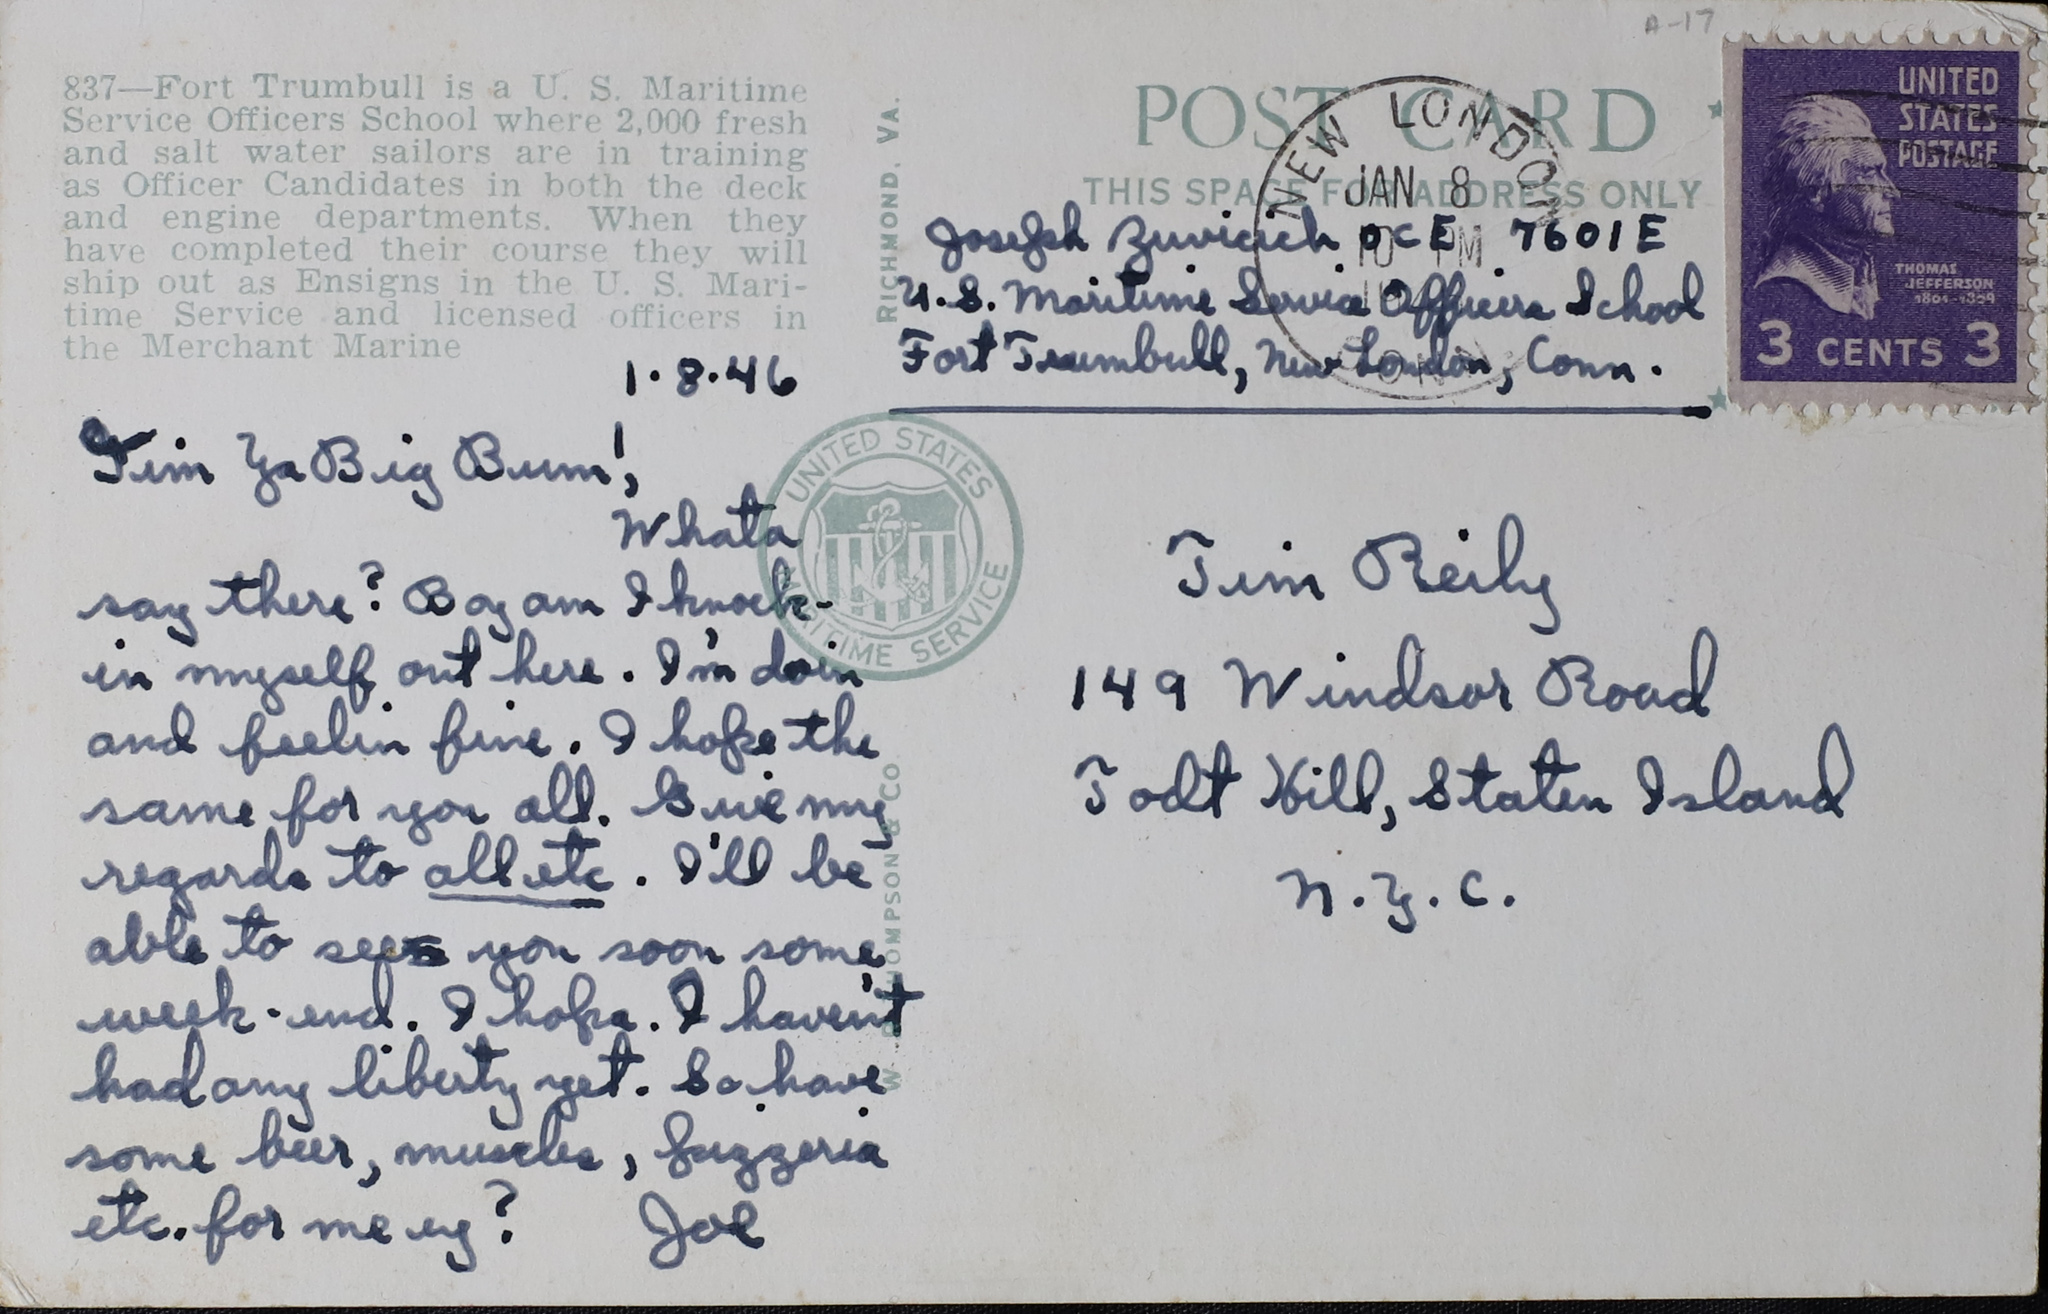 A-17
837—Fort Trumbull is a U. S. Maritime
Service Officers School where 2,000 fresh
and salt water sailors are in training
as Officer Candidates in both the deck
and engine departments. When they
have completed their course they will
ship out as Ensigns in the U. S. Mari-
time Service and licensed officers in
the Merchant Marine
1.8.46
Tim Ya Big Bum!,
Whata
say there? Boy am I knock-
in myself out here. I'm doin
and feelin fine. I hope the
same for you all. Give my
regards to all etc. I'll be
able to see you soon some
week-end. I hope. I haven't
had any liberty yet. So have
some beer, muscles, pizzeria
etc. for me ey?
Joe
RICHMOND, VA.
W. THOMPSON & CO.
UNITED STATES
MARITIME SERVICE
POST CARD
THIS SPACE FOR ADDRESS ONLY
NEW LONDON
JAN 8
10 PM
CONN
Joseph Zuvicich OCE 7601E
U.S. Maritime Service Officers School
Fort Trumbull, New London, Conn.
UNITED
STATES
POSTAGE
THOMAS
JEFFERSON
1801-1809
3 CENTS 3
Tim Reily
149 Windsor Road
Todt Hill, Staten Island
N.Y.C.